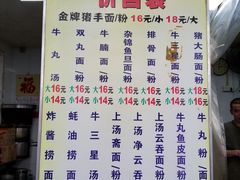 价目表
金牌猪手面/粉 16元/小 18元/大
牛丸汤 大16元 小14元
双丸面 大16元 小14元
牛腩面 大16元 小14元
杂锦鱼旦面/粉 大16元 小14元
排骨面 大16元 小14元
大16元 小14元
猪大肠面/粉 大16元 小14元
炸酱捞面
蚝油捞面
牛三星汤
上汤斋面
上汤净云吞
上汤云吞面
牛丸鱼皮面
牛丸粉面
福